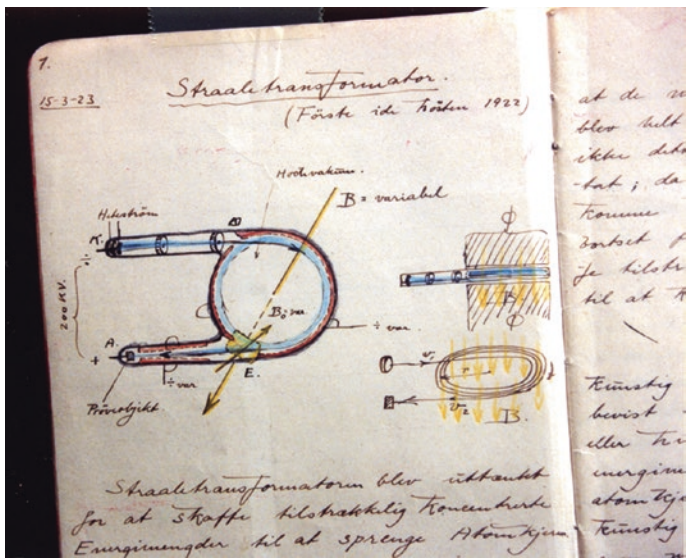 1.
15-3-23
Straaletransformator.
(Förste ide hösten 1922)
Hochvakuum.
B = variabel
Heteström
K.
÷
200 KV.
B₀ = var.
÷ var.
A.
+
÷ var
E.
Pröveobjekt
Φ
B.
Φ
v₁
r
v₂
B.
Straaletransformatoren blev uttænket
for at skaffe tilstrækkelig koncentrerte
Energimengder til at sprenge Atomkjern
at de
blev helt
ikke
-tat; da
komme
bortset
je
til at
Kunstig
bevist
eller
energi
atomkje
Kunstig